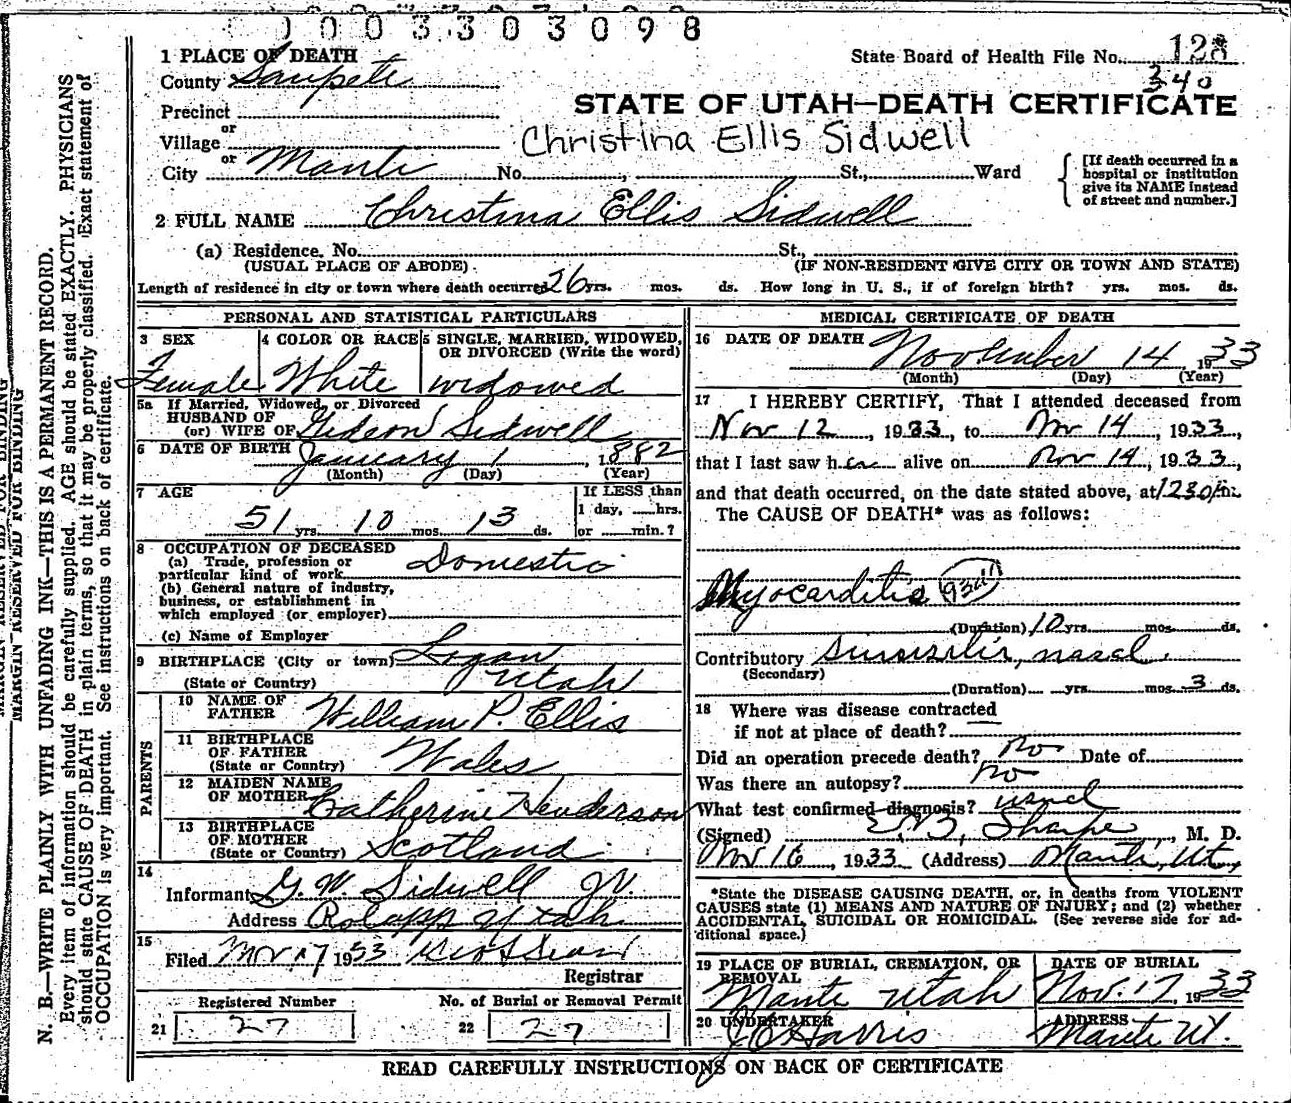 0003303098
1 PLACE OF DEATH
State Board of Health File No. 128
340
County Sanpete
STATE OF UTAH—DEATH CERTIFICATE
Precinct
or
Village
Christina Ellis Sidwell
or
City Manti No. , St., Ward
[If death occurred in a
hospital or institution
give its NAME instead
of street and number.]
2 FULL NAME Christina Ellis Sidwell
(a) Residence. No. St.,
(USUAL PLACE OF ABODE) (IF NON-RESIDENT GIVE CITY OR TOWN AND STATE)
Length of residence in city or town where death occurred 26 yrs. mos. ds. How long in U. S., if of foreign birth? yrs. mos. ds.
PERSONAL AND STATISTICAL PARTICULARS
3 SEX
Female
4 COLOR OR RACE
White
5 SINGLE, MARRIED, WIDOWED,
OR DIVORCED (Write the word)
widowed
5a If Married, Widowed, or Divorced
HUSBAND OF
(or) WIFE OF Gideon Sidwell
6 DATE OF BIRTH January 1, 1882
(Month) (Day) (Year)
7 AGE
51 yrs. 10 mos. 13 ds.
If LESS than
1 day, hrs.
or min.?
8 OCCUPATION OF DECEASED
(a) Trade, profession or
particular kind of work Domestic
(b) General nature of industry,
business, or establishment in
which employed (or employer)
(c) Name of Employer
9 BIRTHPLACE (City or town) Logan
(State or Country) Utah
PARENTS
10 NAME OF
FATHER William P. Ellis
11 BIRTHPLACE
OF FATHER
(State or Country) Wales
12 MAIDEN NAME
OF MOTHER Catherine Henderson
13 BIRTHPLACE
OF MOTHER
(State or Country) Scotland
14
Informant G. W. Sidwell Jr.
Address Utah
15
Filed Nov 17 1933
Registrar
Registered Number
21 27
No. of Burial or Removal Permit
22 27
MEDICAL CERTIFICATE OF DEATH
16 DATE OF DEATH November 14 1933
(Month) (Day) (Year)
17 I HEREBY CERTIFY, That I attended deceased from
Nov 12, 1933, to Nov 14, 1933,
that I last saw her alive on Nov 14, 1933,
and that death occurred, on the date stated above, at 1230 m.
The CAUSE OF DEATH* was as follows:
Myocarditis
(Duration) 10 yrs. mos. ds.
Contributory nasal.
(Secondary)
(Duration) yrs. mos. 3 ds.
18 Where was disease contracted
if not at place of death?
Did an operation precede death? no Date of
Was there an autopsy? no
What test confirmed diagnosis? usual
(Signed) Sharpe, M. D.
Nov 16, 1933 (Address) Manti, Ut,
*State the DISEASE CAUSING DEATH, or, in deaths from VIOLENT
CAUSES state (1) MEANS AND NATURE OF INJURY; and (2) whether
ACCIDENTAL, SUICIDAL OR HOMICIDAL. (See reverse side for ad-
ditional space.)
19 PLACE OF BURIAL, CREMATION, OR
REMOVAL
Manti Utah
DATE OF BURIAL
Nov. 17, 1933
20 UNDERTAKER
Harris
ADDRESS
Manti Ut.
READ CAREFULLY INSTRUCTIONS ON BACK OF CERTIFICATE
MARGIN RESERVED FOR BINDING
MARGIN RESERVED FOR BINDING
N. B.—WRITE PLAINLY WITH UNFADING INK—THIS IS A PERMANENT RECORD.
Every item of information should be carefully supplied. AGE should be stated EXACTLY. PHYSICIANS
should state CAUSE OF DEATH in plain terms, so that it may be properly classified. Exact statement of
OCCUPATION is very important. See instructions on back of certificate.